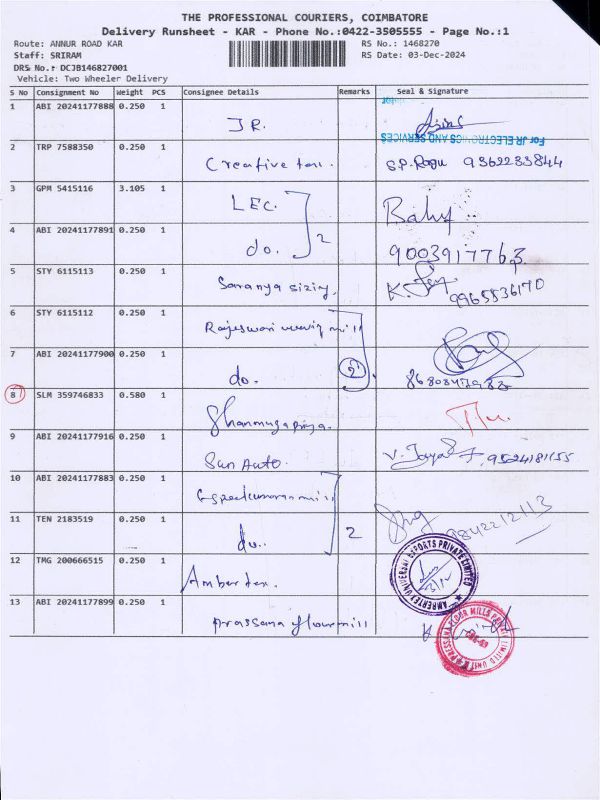 THE PROFESSIONAL COURIERS, COIMBATORE
Delivery Runsheet - KAR - Phone No.:0422-3505555 - Page No.:1
Route: ANNUR ROAD KAR RS No.: 1468270
Staff: SRIRAM RS Date: 03-Dec-2024
DRS No.: DCJB146827001
Vehicle: Two Wheeler Delivery
S No Consignment No Weight PCS Consignee Details Remarks Seal & Signature
1 ABI 20241177888 0.250 1 JR.
For JR ELECTRONICS AND SERVICES
2 TRP 7588350 0.250 1 Creative tex. S.P. Ragu 9362233844
3 GPM 5415116 3.105 1 LEC. Bahy
4 ABI 20241177891 0.250 1 do. 2 9003917763
5 STY 6115113 0.250 1 Saranya sizing. K. 9965536170
6 STY 6115112 0.250 1 Rajeswari mill
7 ABI 20241177900 0.250 1 do. 2
8 SLM 359746833 0.580 1 Shanmugapriya.
9 ABI 20241177916 0.250 1 Sun Auto. V. Jaya
10 ABI 20241177883 0.250 1 mill
11 TEN 2183519 0.250 1 do. 2 9842212113
12 TMG 200666515 1 Amber tex.
AMBERTEX UNIVERSAL EXPORTS PRIVATE LIMITED
13 ABI 20241177899 0.250 1 prassana flour mill
PRASSANA FLOUR MILLS PRIVATE LIMITED UNIT